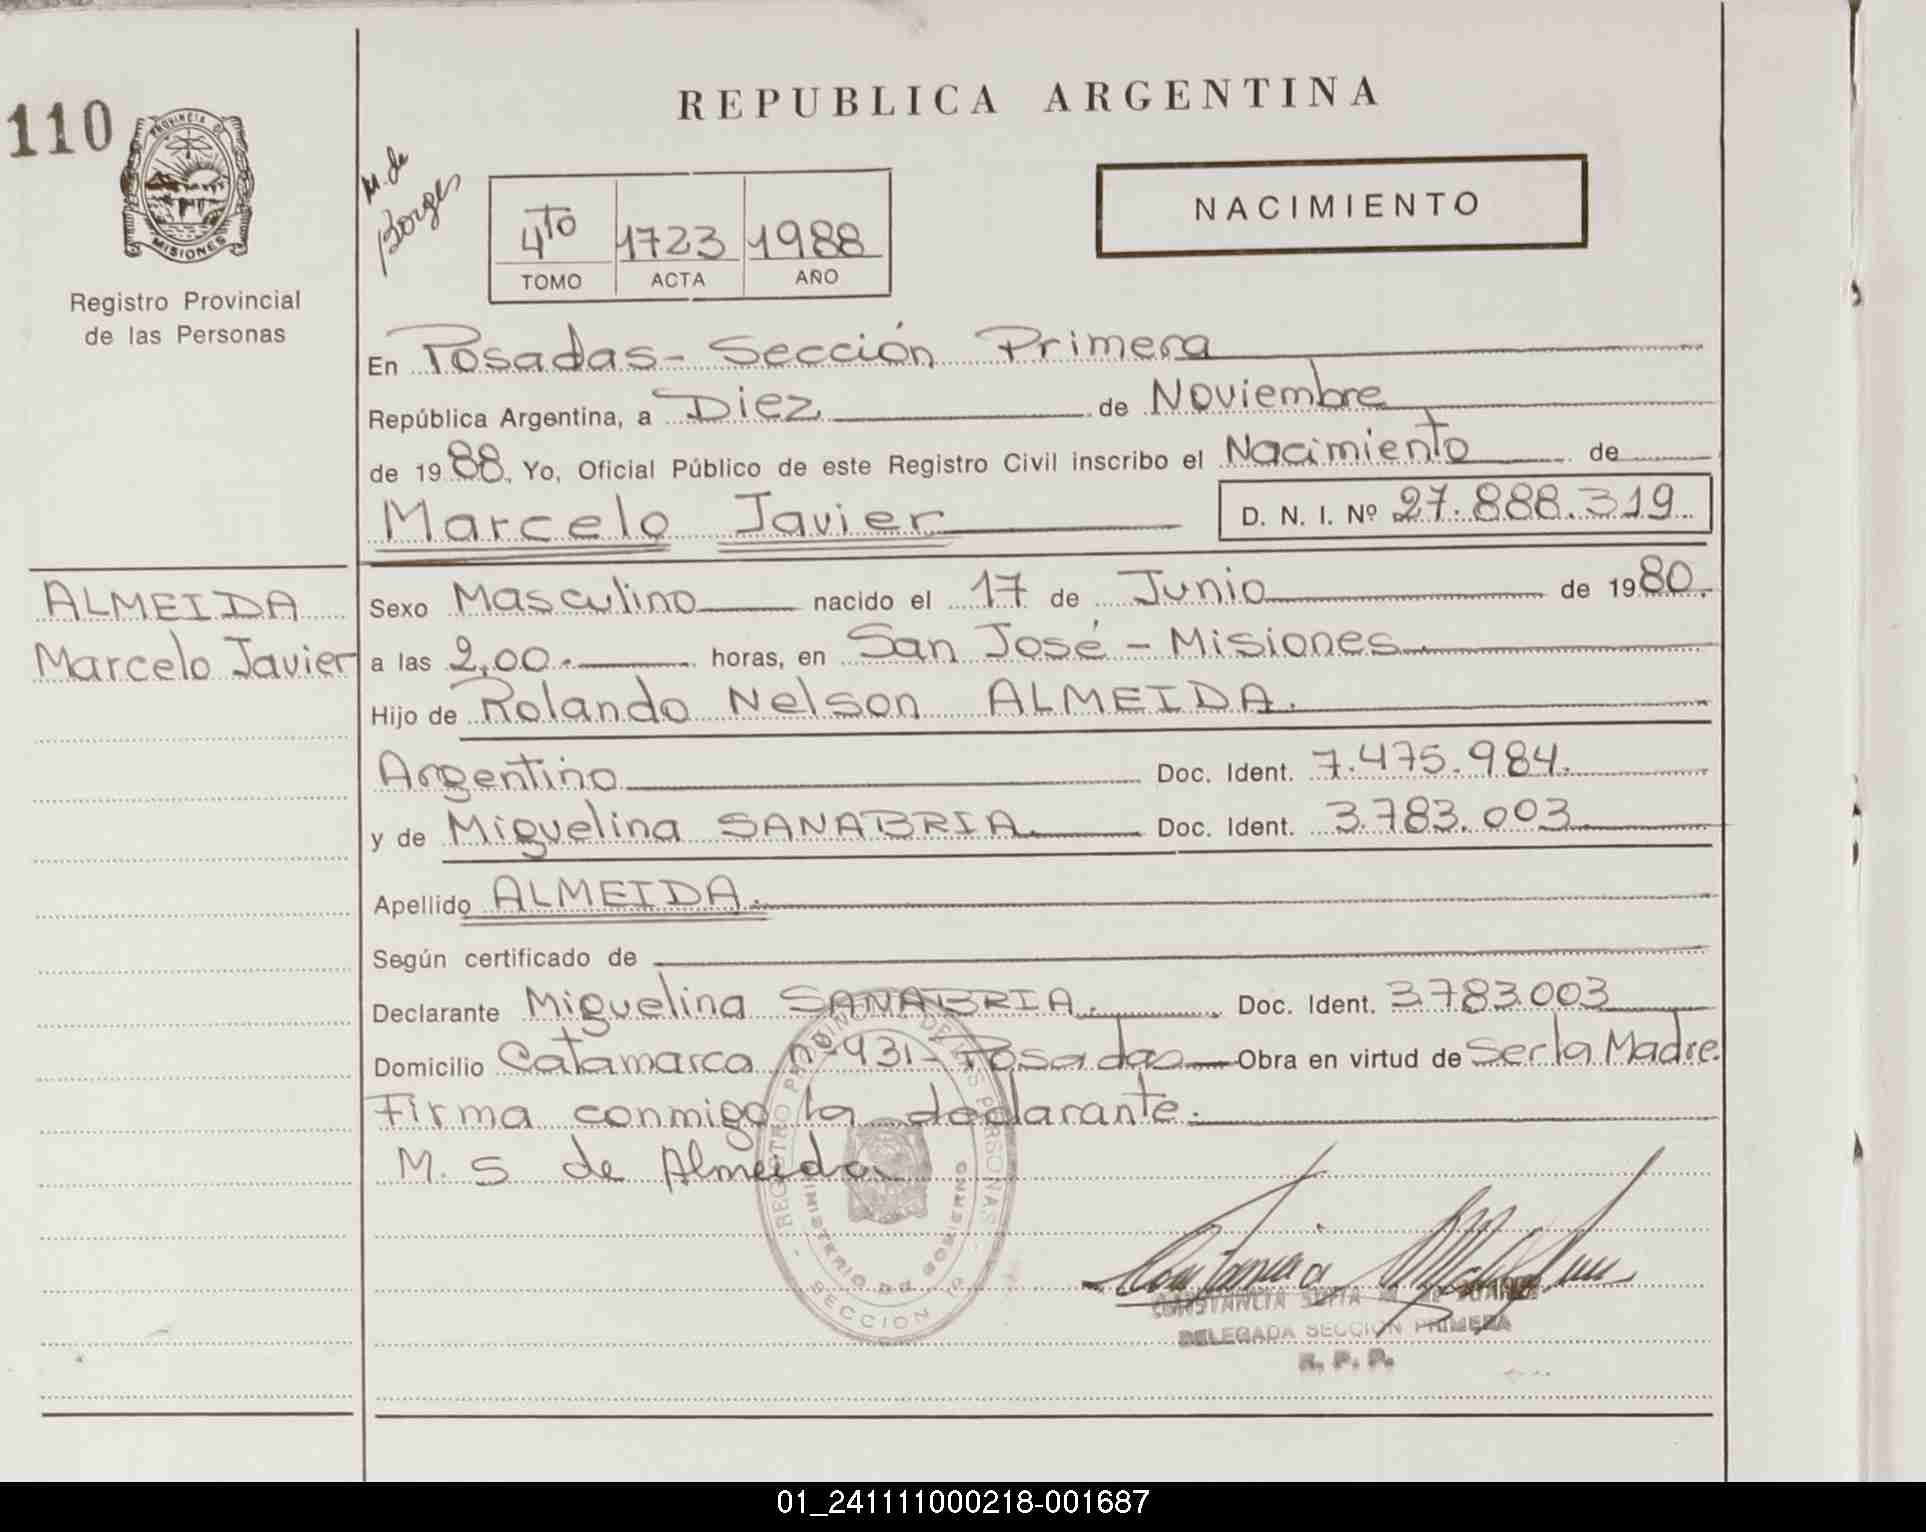 REPUBLICA ARGENTINA
110
PROVINCIA DE
MISIONES
Registro Provincial
de las Personas
M. de
Borges
4to 1723 1988
TOMO ACTA AÑO
NACIMIENTO
En Posadas - Sección Primera
República Argentina, a Diez de Noviembre
de 1988, Yo, Oficial Público de este Registro Civil inscribo el Nacimiento de
Marcelo Javier D. N. I. Nº 27.888.319
ALMEIDA
Marcelo Javier
Sexo Masculino nacido el 17 de Junio de 1980.
a las 2,00.- horas, en San José - Misiones.
Hijo de Rolando Nelson ALMEIDA.
Argentino Doc. Ident. 7.475.984.
y de Miguelina SANABRIA. Doc. Ident. 3.783.003
Apellido ALMEIDA.
Según certificado de
Declarante Miguelina SANABRIA. Doc. Ident. 3.783.003
Domicilio Catamarca nº 931 - Posadas Obra en virtud de Ser la Madre.
Firma conmigo la declarante.
M. S de Almeida
REGISTRO PROVINCIAL DE LAS PERSONAS
MINISTERIO DE GOBIERNO
SECCION 1ª
CONSTANCIA
DELEGADA SECCION PRIMERA
R. P. P.
01_241111000218-001687